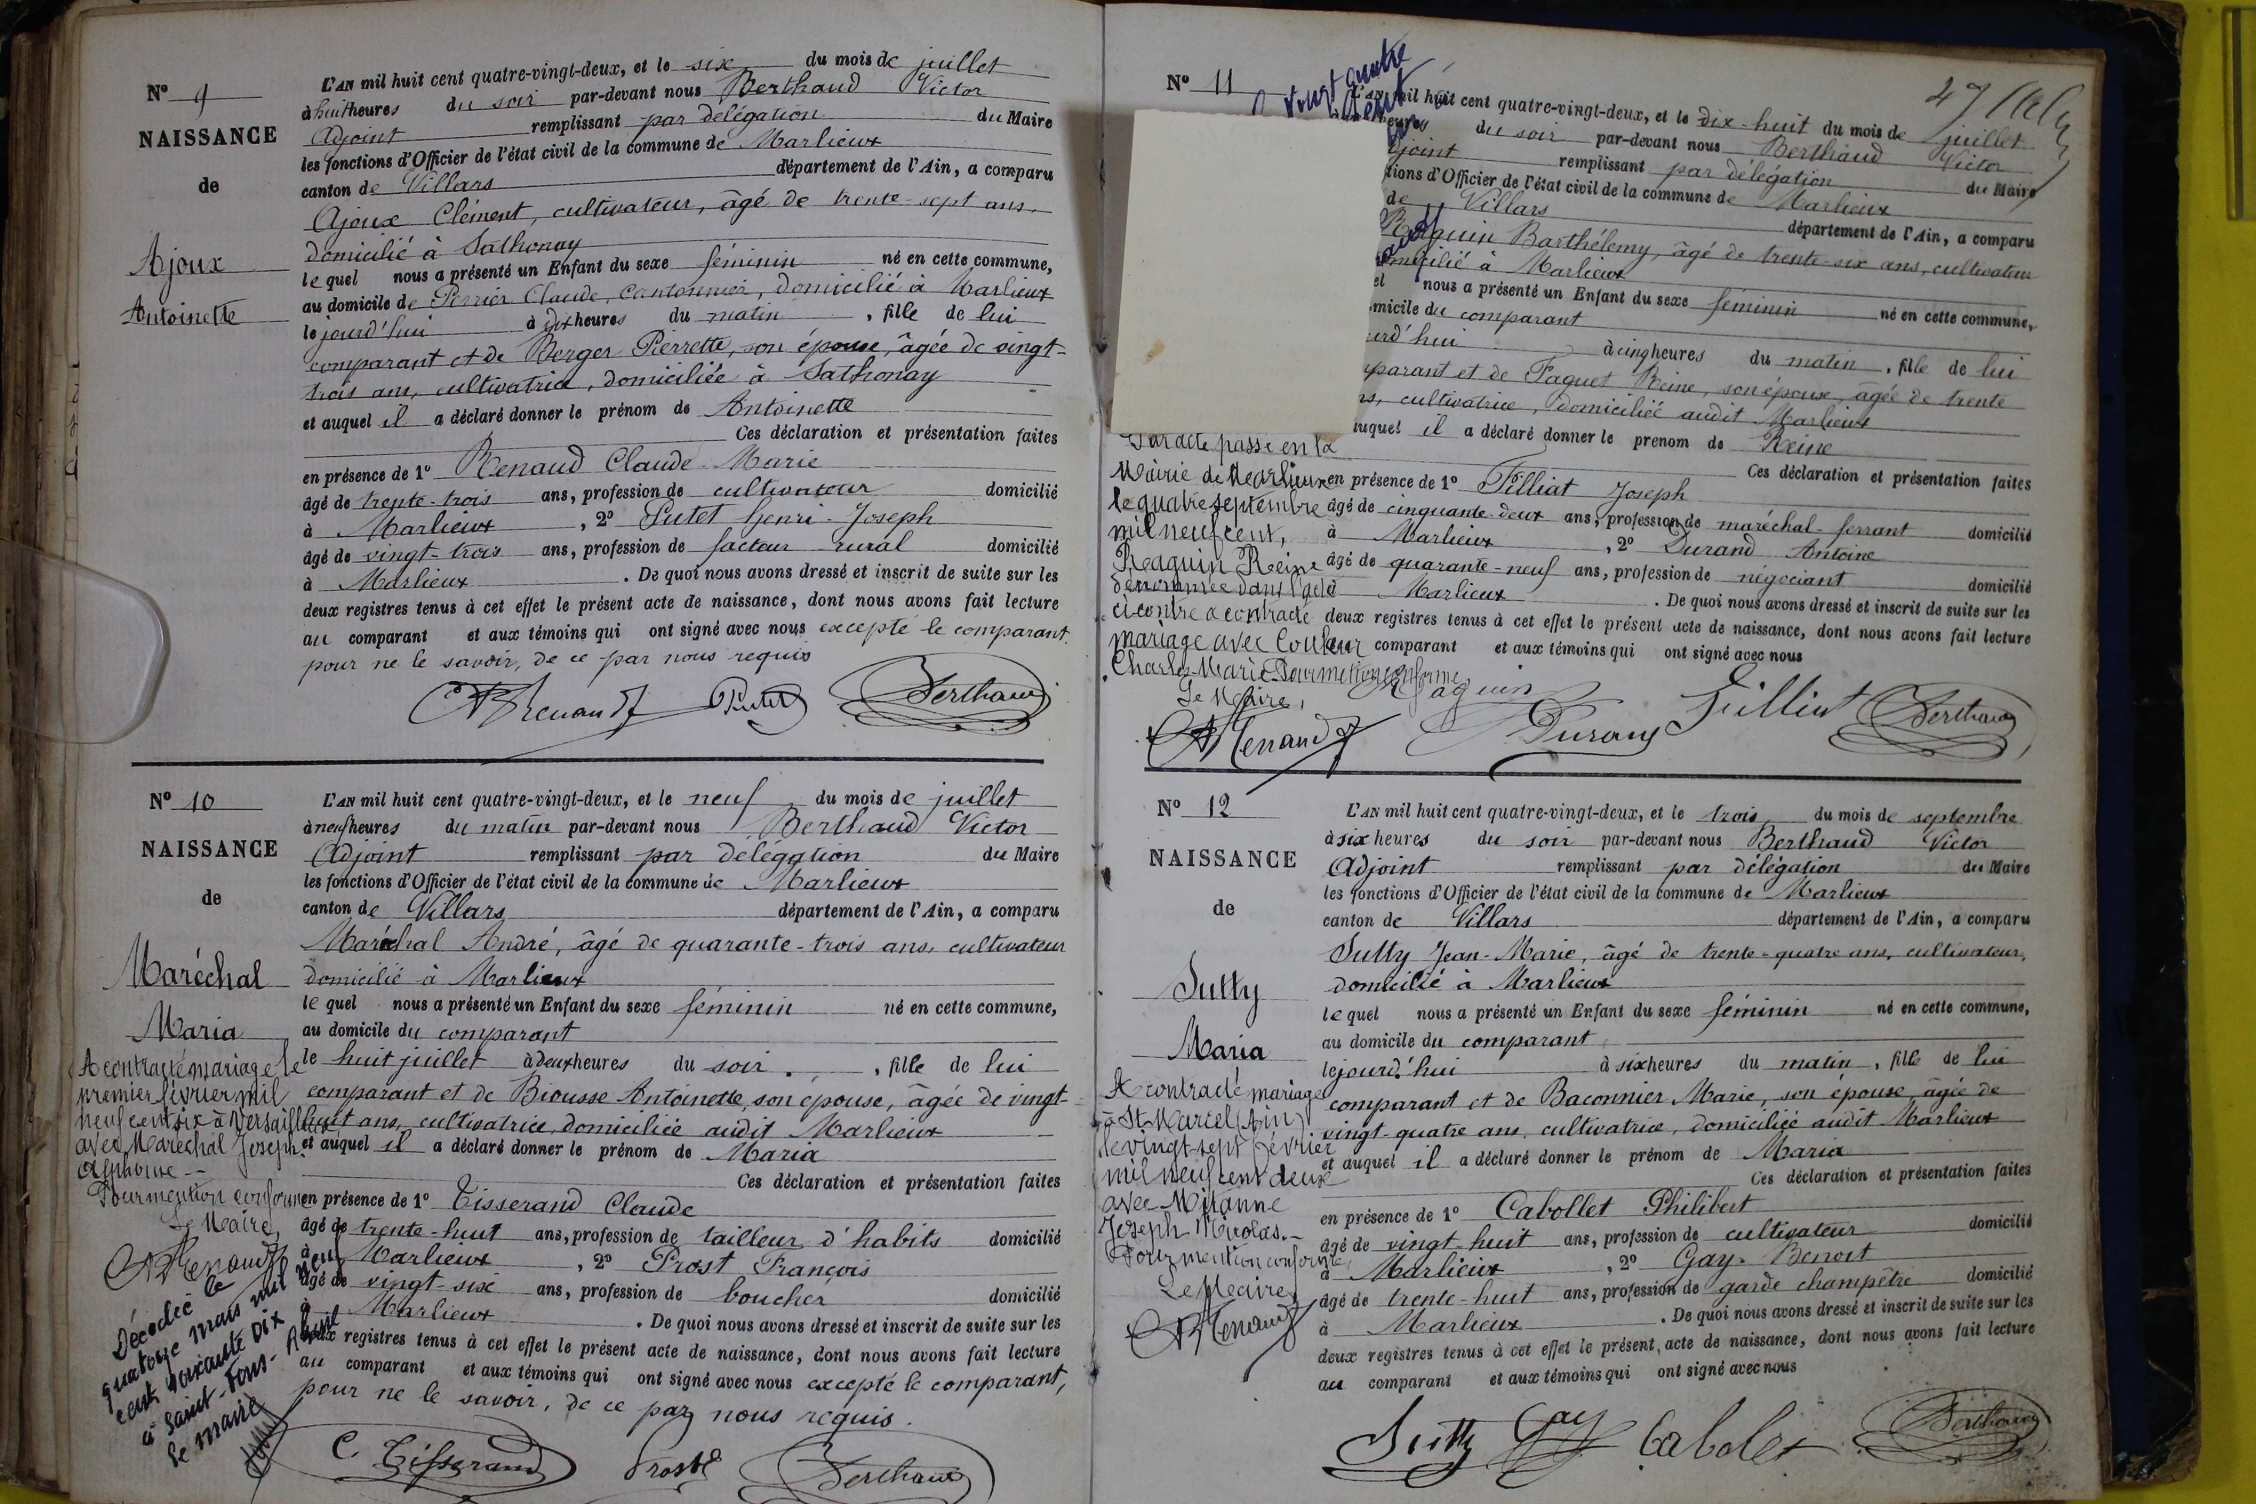 N° 9
NAISSANCE
de
Ajoux
Antoinette
L'AN mil huit cent quatre-vingt-deux, et le six du mois de juillet
à huit heures du soir par-devant nous Berthaud Victor
Adjoint remplissant par délégation du Maire
les fonctions d'Officier de l'état civil de la commune de Marlieux
canton de Villars département de l'Ain, a comparu
Ajoux Clément, cultivateur, âgé de trente-sept ans,
domicilié à Sathonay
lequel nous a présenté un Enfant du sexe féminin né en cette commune,
au domicile de Perrier Claude, cantonnier, domicilié à Marlieux
le jourd'hui à dix heures du matin, fille de lui
comparant et de Berger Pierrette, son épouse, âgée de vingt-
trois ans, cultivatrice, domiciliée à Sathonay
et auquel il a déclaré donner le prénom de Antoinette
Ces déclaration et présentation faites
en présence de 1° Renaud Claude-Marie
âgé de trente-trois ans, profession de cultivateur domicilié
à Marlieux, 2° Putet Henri-Joseph
âgé de vingt-trois ans, profession de facteur rural domicilié
à Marlieux. De quoi nous avons dressé et inscrit de suite sur les
deux registres tenus à cet effet le présent acte de naissance, dont nous avons fait lecture
au comparant et aux témoins qui ont signé avec nous excepté le comparant
pour ne le savoir, de ce par nous requis
Renaud Putet Berthaud
N° 10
NAISSANCE
de
Maréchal
Maria
A contracté mariage le
premier février mil
neuf cent six à Versailleux
avec Maréchal Joseph
Alphonse --
Pour mention conforme
Le Maire,
Renaud
Décédée le
quatorze mars mil neuf
cent soixante dix
à Saint-Fons-Rhône
le maire
L'AN mil huit cent quatre-vingt-deux, et le neuf du mois de juillet
à neuf heures du matin par-devant nous Berthaud Victor
Adjoint remplissant par délégation du Maire
les fonctions d'Officier de l'état civil de la commune de Marlieux
canton de Villars département de l'Ain, a comparu
Maréchal André, âgé de quarante-trois ans, cultivateur
domicilié à Marlieux
lequel nous a présenté un Enfant du sexe féminin né en cette commune,
au domicile du comparant
le huit juillet à deux heures du soir, fille de lui
comparant et de Biousse Antoinette, son épouse, âgée de vingt-
huit ans, cultivatrice, domiciliée audit Marlieux
et auquel il a déclaré donner le prénom de Maria
Ces déclaration et présentation faites
en présence de 1° Tisserand Claude
âgé de trente-huit ans, profession de tailleur d'habits domicilié
à Marlieux, 2° Prost François
âgé de vingt-six ans, profession de boucher domicilié
à Marlieux. De quoi nous avons dressé et inscrit de suite sur les
deux registres tenus à cet effet le présent acte de naissance, dont nous avons fait lecture
au comparant et aux témoins qui ont signé avec nous excepté le comparant,
pour ne le savoir, de ce par nous requis.
C. Tisserand Prost Berthaud
N° 11
vingt quatre
L'AN mil huit cent quatre-vingt-deux, et le dix-huit du mois de juillet
heures du soir par-devant nous Berthaud Victor
djoint remplissant par délégation du Maire
tions d'Officier de l'état civil de la commune de Marlieux
de Villars département de l'Ain, a comparu
Raquin Barthélemy, âgé de trente-six ans, cultivateur
omicilié à Marlieux
el nous a présenté un Enfant du sexe féminin né en cette commune,
micile du comparant
urd'hui à cinq heures du matin, fille de lui
mparant et de Faguet Reine, son épouse, âgée de trente
ns, cultivatrice, domiciliée audit Marlieux
uquel il a déclaré donner le prénom de Reine
Ces déclaration et présentation faites
en présence de 1° Filliat Joseph
âgé de cinquante-deux ans, profession de maréchal-ferrant domicilié
à Marlieux, 2° Durand Antoine
âgé de quarante-neuf ans, profession de négociant domicilié
à Marlieux. De quoi nous avons dressé et inscrit de suite sur les
deux registres tenus à cet effet le présent acte de naissance, dont nous avons fait lecture
au comparant et aux témoins qui ont signé avec nous
Par acte passé en la
Mairie de Marlieux
le quatre septembre
mil neuf cent,
Raquin Reine
dénommée dans l'acte
ci-contre a contracté
mariage avec Couleur
Charles-Marie. Pour mention conforme,
Le Maire,
Renaud
Raquin Durand Filliat Berthaud
N° 12
NAISSANCE
de
Sutty
Maria
A contracté mariage
à St Marcel (Ain)
le vingt-sept février
mil neuf cent deux
avec Mitanne
Joseph Nicolas.-
Pour mention conforme,
Le Maire,
Renaud
L'AN mil huit cent quatre-vingt-deux, et le trois du mois de septembre
à six heures du soir par-devant nous Berthaud Victor
Adjoint remplissant par délégation du Maire
les fonctions d'Officier de l'état civil de la commune de Marlieux
canton de Villars département de l'Ain, a comparu
Sutty Jean-Marie, âgé de trente-quatre ans, cultivateur,
domicilié à Marlieux
lequel nous a présenté un Enfant du sexe féminin né en cette commune,
au domicile du comparant
le jourd'hui à six heures du matin, fille de lui
comparant et de Baconnier Marie, son épouse, âgée de
vingt-quatre ans, cultivatrice, domiciliée audit Marlieux
et auquel il a déclaré donner le prénom de Maria
Ces déclaration et présentation faites
en présence de 1° Cabollet Philibert
âgé de vingt-huit ans, profession de cultivateur domicilié
à Marlieux, 2° Gay Benoit
âgé de trente-huit ans, profession de garde champêtre domicilié
à Marlieux. De quoi nous avons dressé et inscrit de suite sur les
deux registres tenus à cet effet le présent acte de naissance, dont nous avons fait lecture
au comparant et aux témoins qui ont signé avec nous
Sutty Gay Cabolet Berthaud